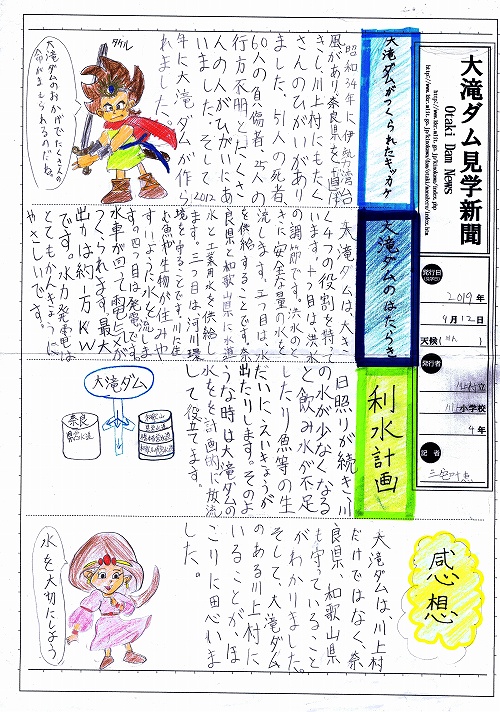 大滝ダム見学新聞
Otaki Dam News
発行日
2019年
9月12日
天候
発行者
川上村立
川上小学校
4年
記者
大滝ダムがつくられたキッカケ
昭和34年に伊勢湾台
風があり奈良県を直撃
きし、川上村にもたく
さんのひがいがあり
ました。51人の死者、
60人の負傷者、25人の
行方不明とたくさ
んの人がひがいにあ
いました。そして2012
年に大滝ダムが作ら
れました。
タケル
大滝ダムのおかげでたくさんの
命がまもられるのだね。
大滝ダムのはたらき
大滝ダムは、大き
く4つの役割を持って
います。一つ目は、洪水
の調節です。洪水のと
きに安全な量の水を
流します。二つ目は、水
を供給することです。奈
良県と和歌山県に水道
水と工業用水を供給し
ます。三つ目は河川環
境を守ることです。川に生
む魚や生物が住みや
すいように水を流しま
す。四つ目は発電です。
水車が回って電気が
つくられます。最大
出力は約1万KW
です。水力発電は
とてもかんきょうに
やさしいです。
利水計画
日照りが続き、川
の水が少なくなる
と飲み水が不足
したり魚等の生
だいにえいきょうが
出たりします。そのよ
うな時は大滝ダムの
水を計画的に放流
して役立てます。
大滝ダム
奈良
県営水道
和歌山
感想
大滝ダムは、川上村
だけではなく、奈
良県、和歌山県
も守っていること
がわかりました。
そして、大滝ダム
のある川上村に
いることが、ほ
こりに思いま
した。
水を大切にしよう